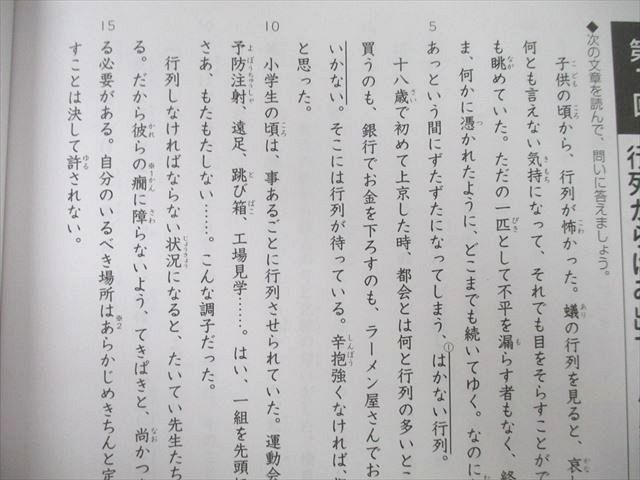 行列からはみ出す
◆次の文章を読んで、問いに答えましょう。
子供の頃から、行列が怖かった。蟻の行列を見ると、哀し
何とも言えない気持になって、それでも目をそらすことがで
も眺めていた。ただの一匹として不平を漏らす者もなく、終
ま、何かに憑かれたように、どこまでも続いてゆく。なのに
5 あっという間にずたずたになってしまう、①はかない行列。
十八歳で初めて上京した時、都会とは何と行列の多いとこ
買うのも、銀行でお金を下ろすのも、ラーメン屋さんでお
いかない。そこには行列が待っている。辛抱強くなければ、
と思った。
10 小学生の頃は、事あるごとに行列させられていた。運動会
予防注射、遠足、跳び箱、工場見学……。はい、一組を先頭
さあ、もたもたしない……。こんな調子だった。
行列しなければならない状況になると、たいてい先生たち
る。だから彼らの※1癇に障らないよう、てきぱきと、尚かつ
15 る必要がある。自分のいるべき場所は※2あらかじめきちんと定
すことは決して許されない。